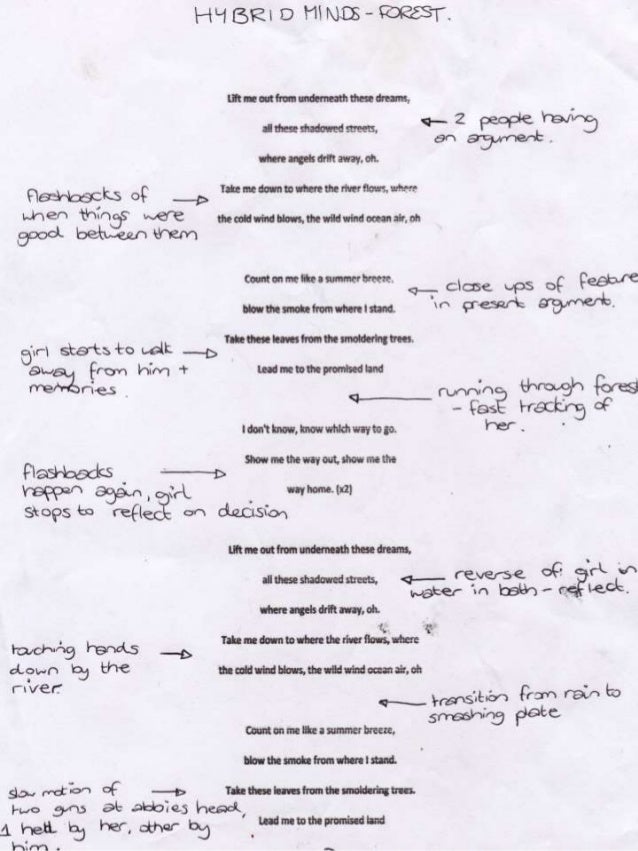 HYBRID MINDS - FOREST.
Lift me out from underneath these dreams,
all these shadowed streets,
where angels drift away, oh.
← 2 people having
an argument.
Take me down to where the river flows, where
the cold wind blows, the wild wind ocean air, oh
flashbacks of →
when things were
good between them
Count on me like a summer breeze.
blow the smoke from where I stand.
← close ups of feature
in present argument.
Take these leaves from the smoldering trees.
Lead me to the promised land
girl starts to walk →
away from him +
memories.
← running through forest
- fast tracking of
her.
I don't know, know which way to go.
Show me the way out, show me the
way home. (x2)
flashbacks →
happen again, girl
stops to reflect on decision
Lift me out from underneath these dreams,
all these shadowed streets,
where angels drift away, oh.
← reverse of: girl in
water in bath - reflect.
Take me down to where the river flows, where
the cold wind blows, the wild wind ocean air, oh
touching hands →
down by the
river
← transition from rain to
smashing plate
Count on me like a summer breeze,
blow the smoke from where I stand.
Take these leaves from the smoldering trees.
Lead me to the promised land
slow motion of →
two guns at abbies head,
1 held by her, other by
him.